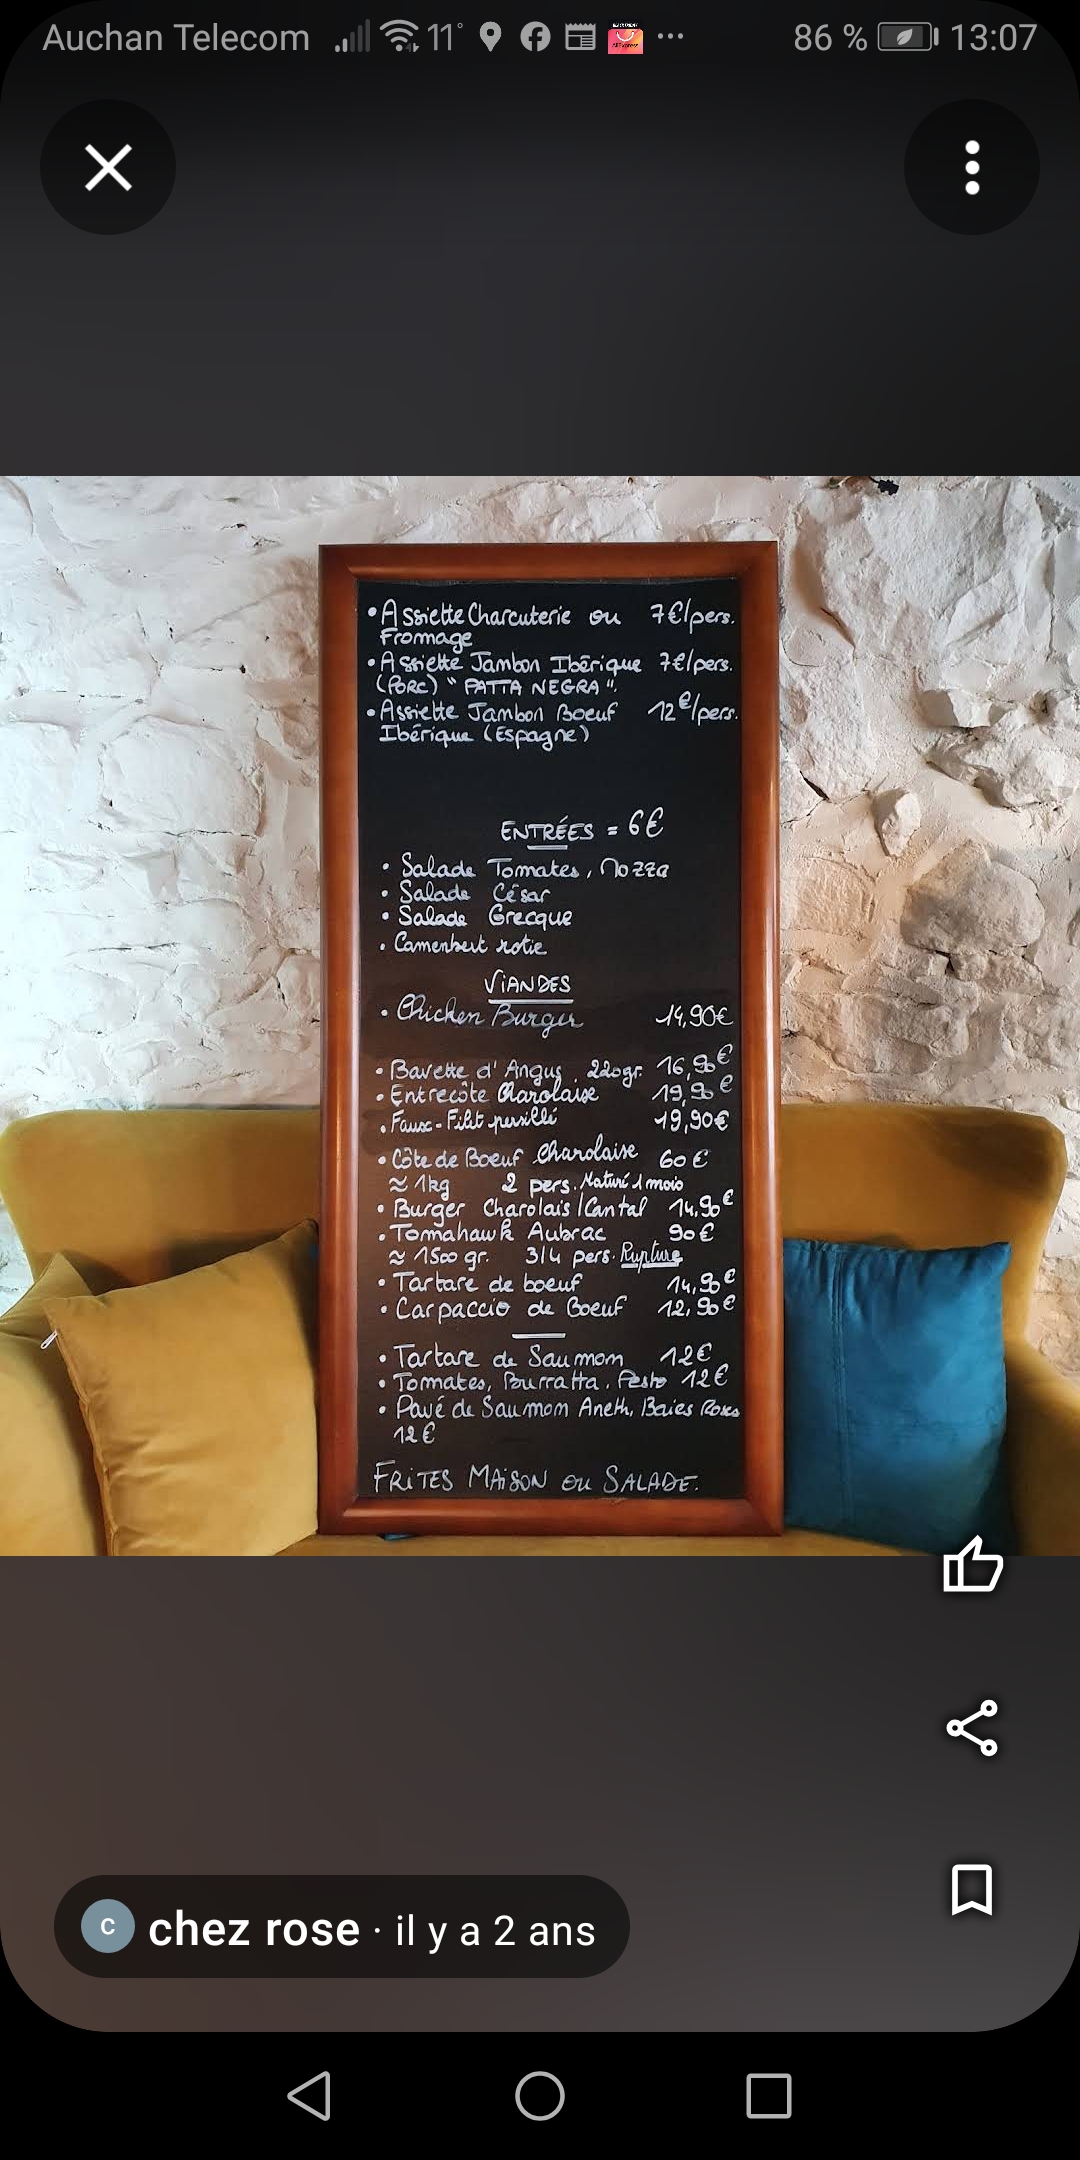 Auchan Telecom 11° 86 % 13:07
• Assiette Charcuterie ou 7€/pers.
Fromage
• Assiette Jambon Ibérique 7€/pers.
(PORC) " PATTA NEGRA ".
• Assiette Jambon Boeuf 12€/pers.
Ibérique (Espagne)
ENTRÉES = 6€
• Salade Tomates, Mozza
• Salade César
• Salade Grecque
• Camenbert rotie
VIANDES
• Chicken Burger 14,90€
• Bavette d'Angus 220gr. 16,90€
• Entrecôte Charolaise 19,90€
• Faux-Filet persillé 19,90€
• Côte de Boeuf Charolaise 60€
≈ 1kg 2 pers. Maturé 1 mois
• Burger Charolais/Cantal 14,90€
• Tomahawk Aubrac 90€
≈ 1500 gr. 3/4 pers. Rupture
• Tartare de boeuf 14,90€
• Carpaccio de Boeuf 12,90€
• Tartare de Saumom 12€
• Tomates, Burratta, Pesto 12€
• Pavé de Saumom Aneth, Baies Roses
12€
FRITES MAISON OU SALADE.
C chez rose · il y a 2 ans